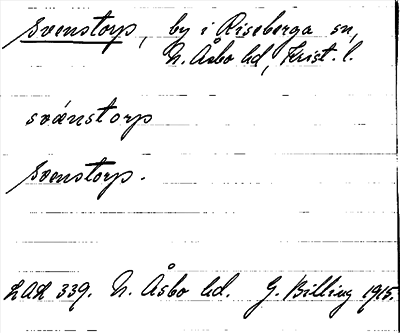 Svenstorp, by i Riseberga sn,
N. Åsbo hd, Krist. l.
svänstorp
Svenstorp.
LAL 339. N. Åsbo hd. G. Billing 1915.